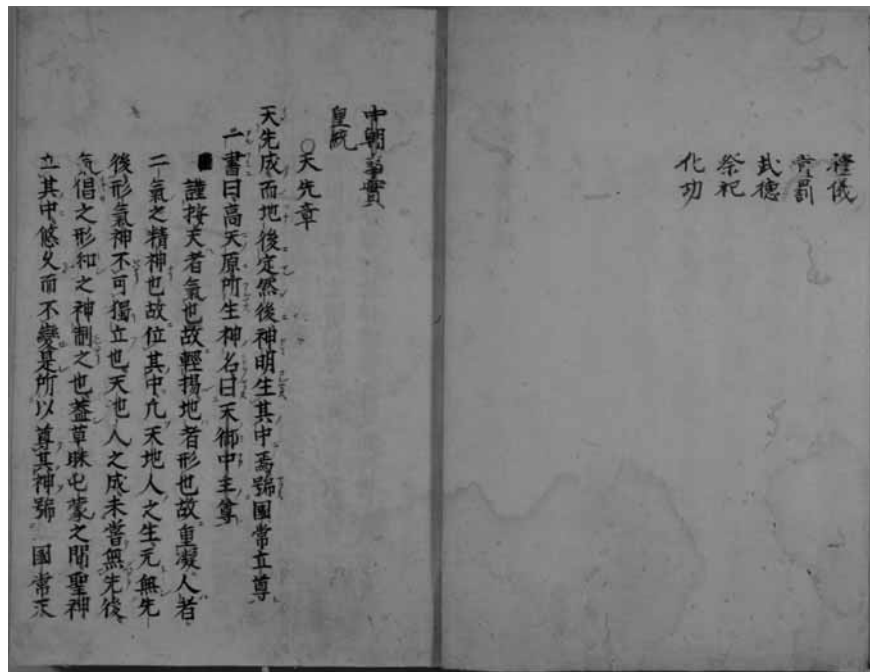 禮儀
賞罰
武德
祭祀
化功
中朝事實
皇統
○天先章
天先成而地後定然後神明生其中焉號國常立尊
一書曰高天原所生神名曰天御中主尊
謹按天者氣也故輕揚地者形也故重凝人者
二氣之精神也故位其中凡天地人之生元無先
後形氣神不可獨立也天地人之成未嘗無先後
氣倡之形和之神制之也蓋草昧屯蒙之間聖神
立其中悠久而不變是所以尊其神號國常